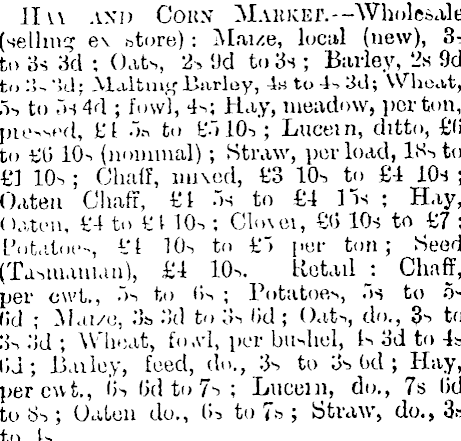 HAY AND CORN MARKET.—Wholesale
(selling ex store): Maize, local (new), 3s
to 3s 3d; Oats, 2s 9d to 3s; Barley, 2s 9d
to 3s 3d; Malting Barley, 4s to 4s 3d; Wheat,
5s to 5s 4d; fowl, 4s; Hay, meadow, per ton,
pressed, £4 5s to £5 10s; Lucern, ditto, £6
to £6 10s (nominal); Straw, per load, 18s to
£1 10s; Chaff, mixed, £3 10s to £4 10s;
Oaten Chaff, £4 5s to £4 15s; Hay,
Oaten, £4 to £4 10s; Clover, £6 10s to £7;
Potatoes, £4 10s to £5 per ton; Seed
(Tasmanian), £4 10s. Retail: Chaff,
per cwt., 5s to 6s; Potatoes, 5s to 5s
6d; Maize, 3s 3d to 3s 6d; Oats, do., 3s to
3s 3d; Wheat, fowl, per bushel, 4s 3d to 4s
6d; Barley, feed, do., 3s to 3s 6d; Hay,
per cwt., 6s 6d to 7s; Lucern, do., 7s 6d
to 8s; Oaten do., 6s to 7s; Straw, do., 3s
to 4s